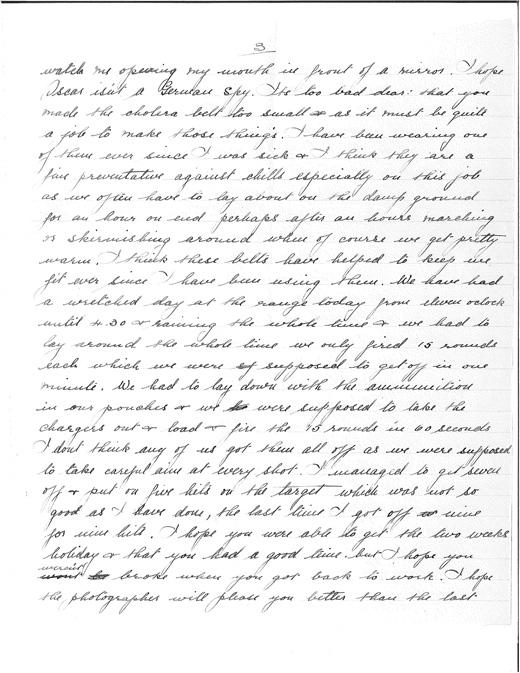 3
watch me opening my mouth in front of a mirror. I hope
Oscar isn't a German spy. Its too bad dear: that you
made the cholera belt too small & as it must be quite
a job to make those things. I have been wearing one
of them ever since I was sick & I think they are a
fine preventative against chills especially on this job
as we often have to lay about on the damp ground
for an hour on end perhaps after an hours marching
or skirmishing around when of course we get pretty
warm. I think these belts have helped to keep me
fit ever since I have been using them. We have had
a wretched day at the range today from eleven oclock
until 4.30 & raining the whole time & we had to
lay around the whole time we only fired 15 rounds
each which we were supposed to get off in one
minute. We had to lay down with the ammunition
in our pouches & we were supposed to take the
chargers out & load & fire the 15 rounds in 60 seconds
I dont think any of us got them all off as we were supposed
to take careful aim at every shot. I managed to get seven
off & put on five hits on the target which was not so
good as I have done, the last time I got off nine
for nine hits. I hope you were able to get the two weeks
holiday & that you had a good time. but I hope you
weren't
wont broke when you got back to work. I hope
the photographer will please you better than the last